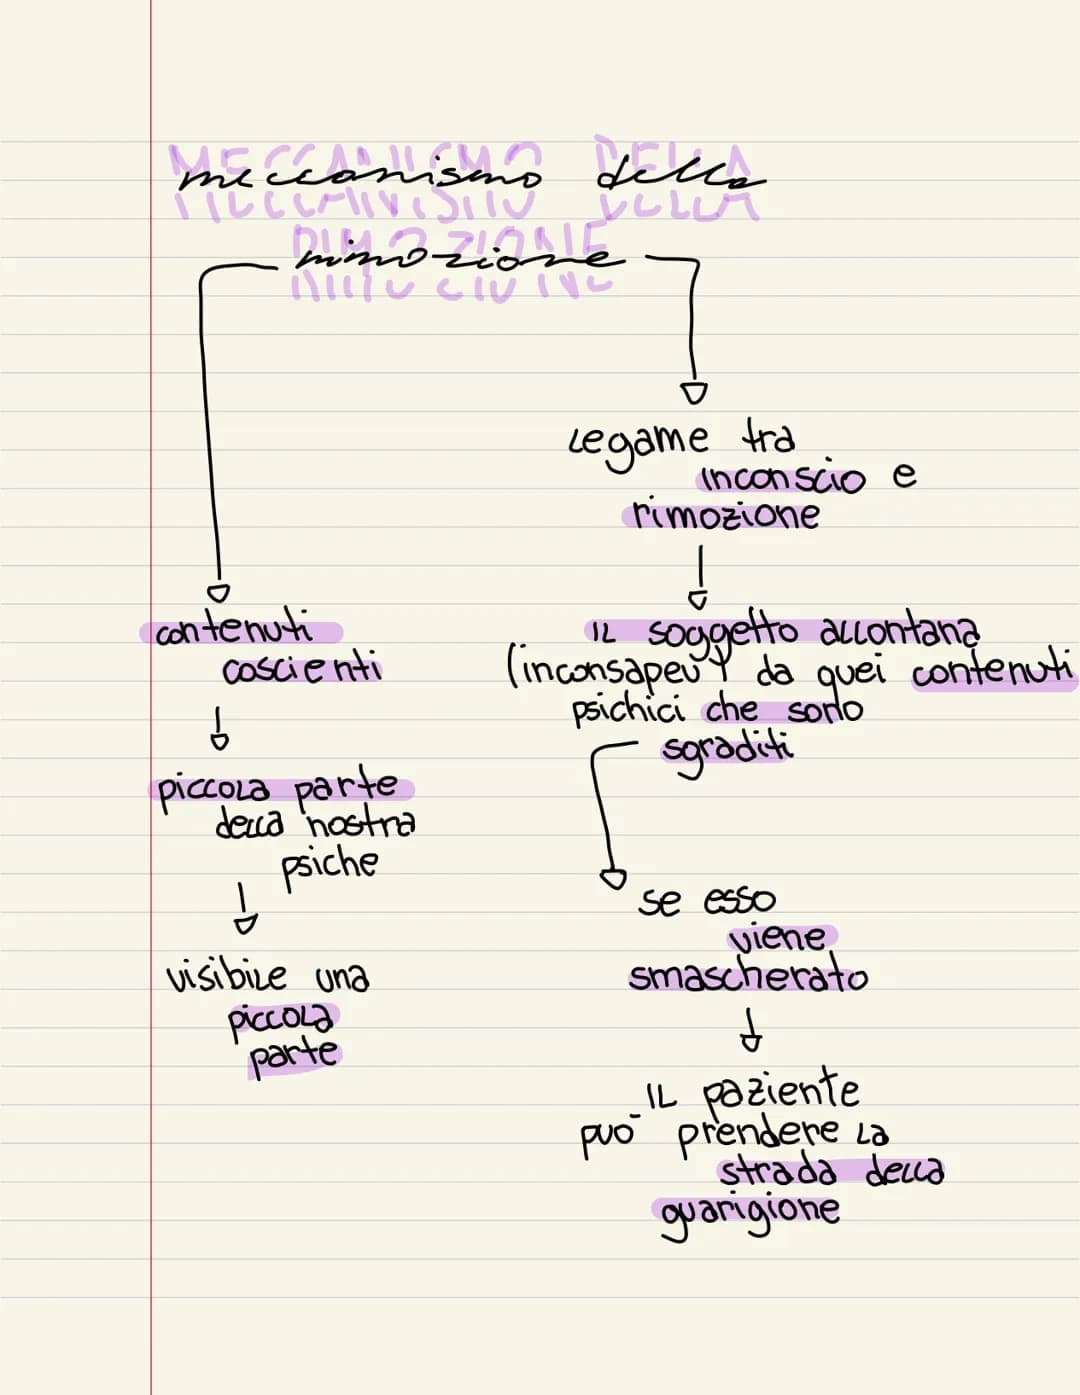 meccanismo della
rimozione
legame tra
inconscio e
rimozione
contenuti
coscienti
piccola parte
della nostra
psiche
visibile una
piccola
parte
il soggetto allontana
(inconsapev) da quei contenuti
psichici che sono
sgraditi
se esso
viene
smascherato
il paziente
può prendere la
strada della
guarigione